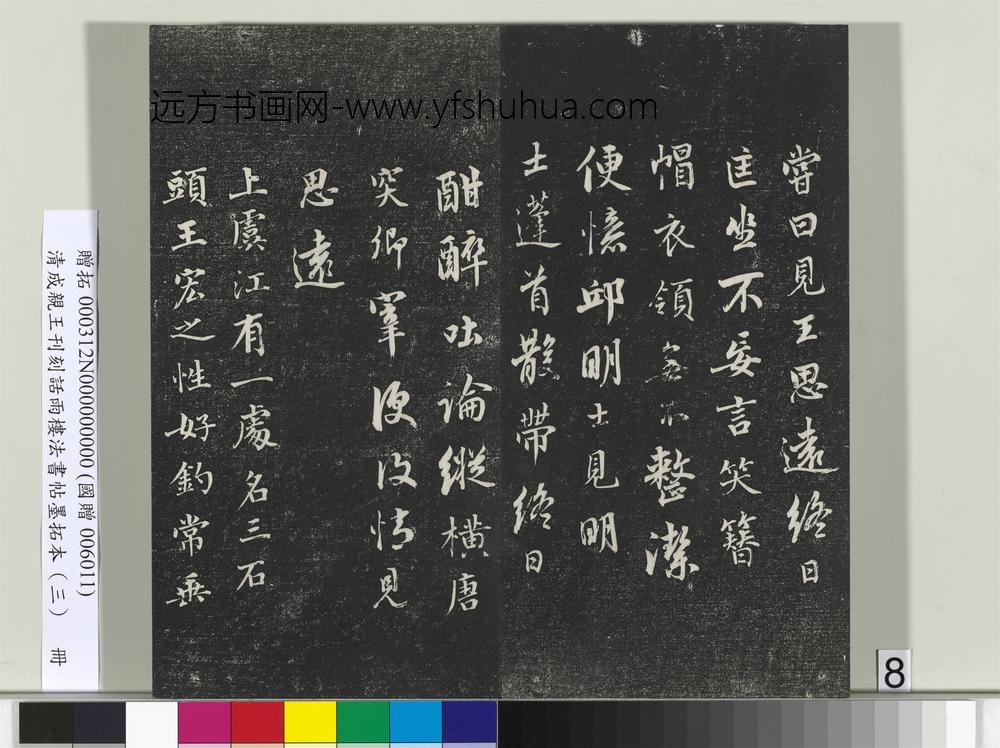 远方书画网-www.yfshuhua.com
嘗曰見王思遠終日
匡坐不妄言笑簪
帽衣領無不整潔
便憶邱明士見明
士蓬首散帶終日
酣醉吐論縱橫唐
突卿宰便復憶見
思遠
上虞江有一處名三石
頭王宏之性好釣常垂
贈拓 000312N000000000 (國贈 006011)
清成親王刊刻話雨樓法書帖墨拓本(三) 冊
8